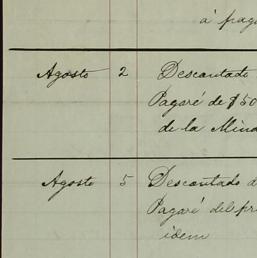 á paga
Agosto 2 Descontado
Pagaré de $50
de la Mina
Agosto 5 Descontado d
Pagaré del pr
idem